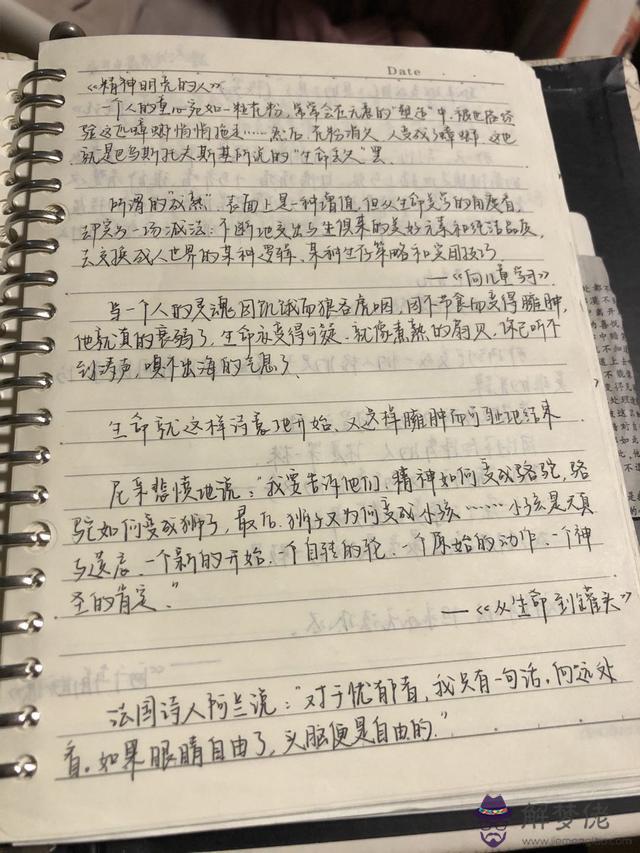 Date
《精神明亮的人》
一个人的童心宛如一粒花粉,常常会在无意的"塑造"中,被世俗经
验这匹蟑螂悄悄拖走……然后,花粉消失,人变成了蟑螂。这也
就是巴乌斯托夫斯基所说的"生命丢失"罢.
所谓的"成熟",表面上是一种增值,但从生命美学的角度看,
却实为一场减法:不断地交出与生俱来的美好元素和纯洁品质,
去交换成人世界的某种逻辑、某种生存策略和实用技巧
——《向儿童学习》
当一个人的灵魂因饥饿而狼吞虎咽,因不节食而变得臃肿,
他就真的衰弱了,生命亦变得可疑.就像煮熟的扇贝,你已听不
到涛声,嗅不出海的气息了.
生命就这样诗意地开始、又这样臃肿而可耻地结束
尼采悲愤地说:"我要告诉他们,精神如何变成骆驼,骆
驼如何变成狮子,最后,狮子又为何变成小孩……小孩是天真
与遗忘、一个新的开始、一个自转的轮、一个原始的动作、一个神
圣的肯定."
——《从生命到罐头》
法国诗人阿兰说:"对于忧郁者,我只有一句话,向远处
看。如果眼睛自由了,头脑便是自由的."
解梦佬